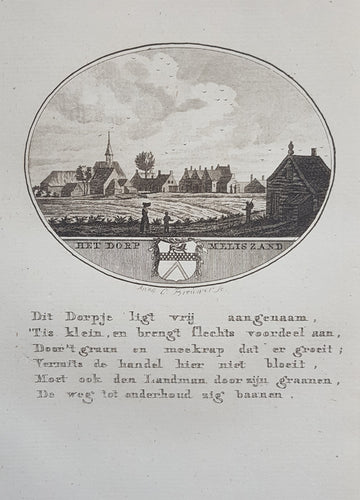 HET DORP MELISZAND
Anna C. Brouwer sc.
Dit Dorpje ligt vrij aangenaam,
'Tis klein, en brengt slechts voordeel aan,
Door't graan en meekrap dat er groeit;
Vermits de handel hier niet bloeit,
Moet ook den Landman door zijn graanen,
De weg tot onderhoud zig baanen.